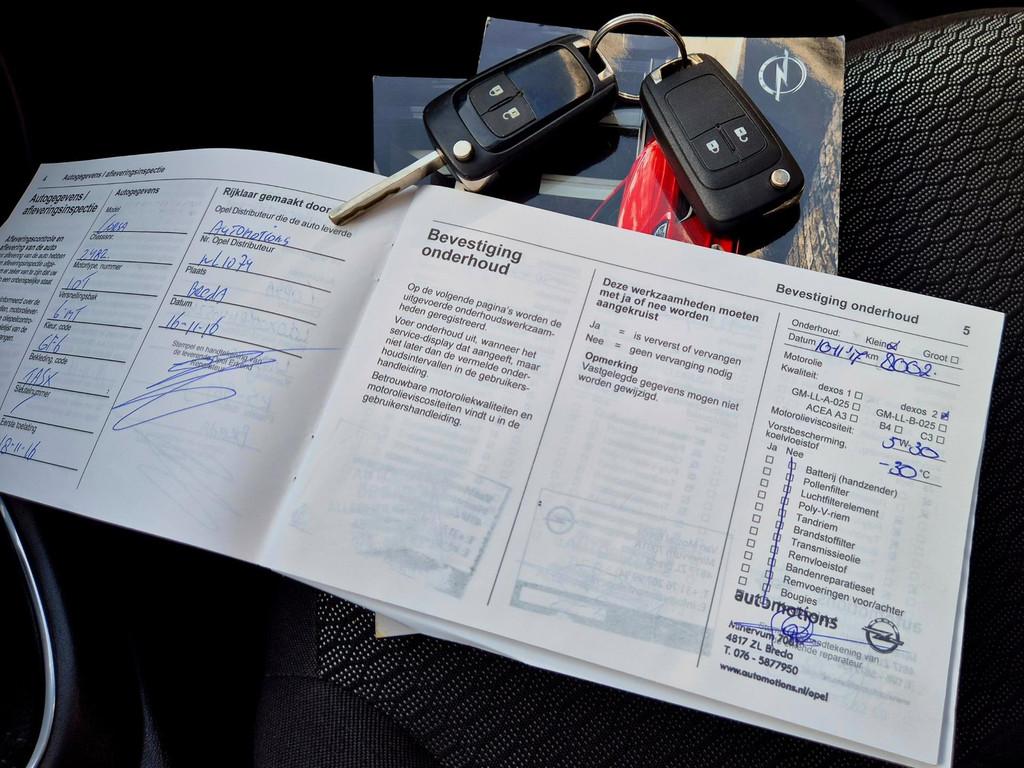 4 Autogegevens / afleveringsinspectie
Autogegevens/
afleveringsinspectie
Afleveringscontrole en
Autogegevens
Model
CORSA
Chassisnr.
Motortype, nummer
1.0T
Versnellingsbak
6MT
Kleur, code
G76
Bekleding, code
TASX
Sleutelnummer
Eerste toelating
18-11-16
Rijklaar gemaakt door
Opel Distributeur die de auto leverde
AUTOMOTIONS
Nr. Opel Distributeur
Plaats
BREDA
Datum
16-11-16
Stempel en handtekening van
de leverende Opel Erkend
Reparateur
Bevestiging
onderhoud
Op de volgende pagina's worden de
uitgevoerde onderhoudswerkzaam-
heden geregistreerd.
Voer onderhoud uit, wanneer het
service-display dat aangeeft, maar
niet later dan de vermelde onder-
houdsintervallen in de gebruikers-
handleiding.
Betrouwbare motoroliekwaliteiten en
motorolieviscositeiten vindt u in de
gebruikershandleiding.
Deze werkzaamheden moeten
met ja of nee worden
aangekruist
Ja = is ververst of vervangen
Nee = geen vervanging nodig
Opmerking
Vastgelegde gegevens mogen niet
worden gewijzigd.
Bevestiging onderhoud 5
Onderhoud: Klein Groot
Datum 10-11-'17 km 8002.
Motorolie
Kwaliteit:
dexos 1 dexos 2
GM-LL-A-025 GM-LL-B-025
ACEA A3 B4 C3
Motorolieviscositeit: 5W-30
Vorstbescherming,
koelvloeistof -30 °C
Ja Nee
Batterij (handzender)
Pollenfilter
Luchtfilterelement
Poly-V-riem
Tandriem
Brandstoffilter
Transmissieolie
Remvloeistof
Bandenreparatieset
Remvoeringen voor/achter
Bougies
automotions
Minervum
4817 ZL Breda
T. 076 - 5877950
www.automotions.nl/opel